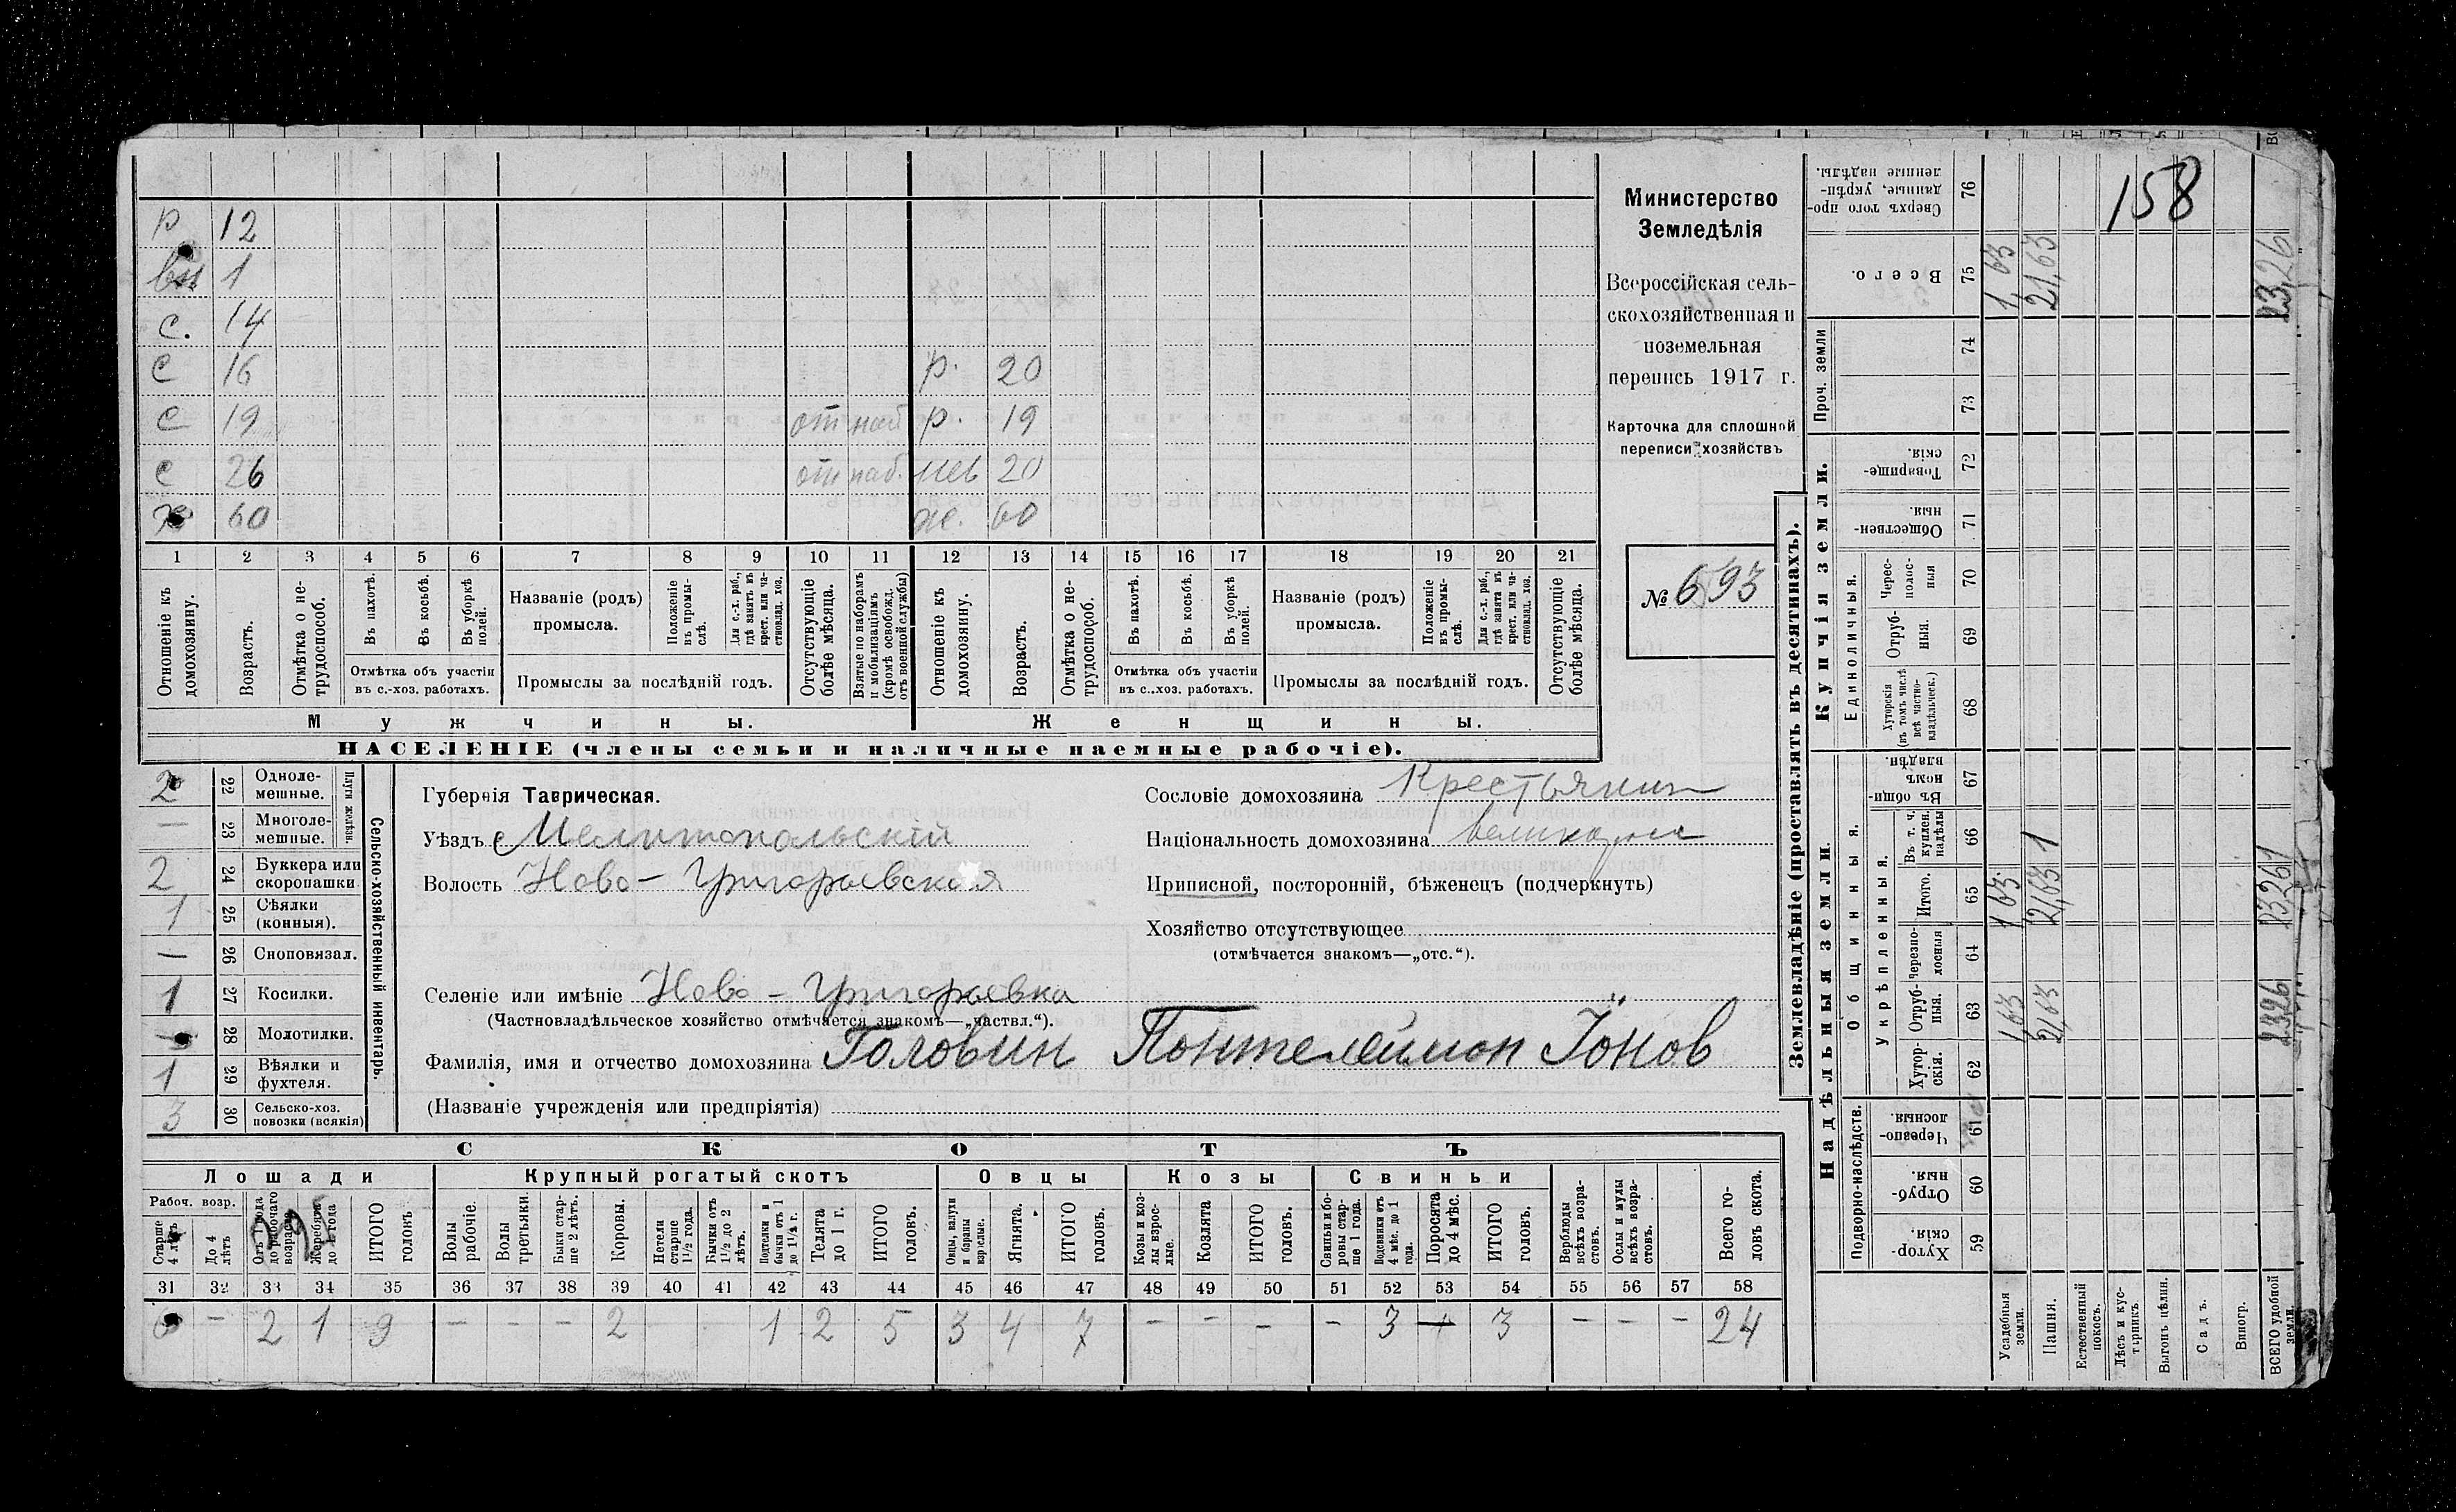 158
Министерство
Земледѣлія
Всероссійская сель-
скохозяйственная и
поземельная
перепись 1917 г.
Карточка для сплошной
переписи хозяйствъ
№ 693
р 12
вн 1
с. 14
с 16 р. 20
с 19 от наб р. 19
с 26 от наб. нев 20
60 ж. 60
1 2 3 4 5 6 7 8 9 10 11 12 13 14 15 16 17 18 19 20 21
Отношеніе къ домохозяину.
Возрастъ.
Отмѣтка о не-трудоспособ.
Въ пахотѣ.
Въ косьбѣ.
Въ уборкѣ полей.
Отмѣтка объ участіи
въ с.-хоз. работахъ.
Названіе (родъ)
промысла.
Положеніе въ промы-слѣ.
Для с.-х. раб., гдѣ занятъ въ крест. или ча-стновлад. хоз.
Промыслы за послѣдній годъ.
Отсутствующіе болѣе мѣсяца.
Взятые по наборамъ и мобилизаціямъ (кромѣ освобожд. отъ военной службы)
Отношеніе къ домохозяину.
Возрастъ.
Отмѣтка о не-трудоспособ.
Въ пахотѣ.
Въ косьбѣ.
Въ уборкѣ полей.
Отмѣтка объ участіи
въ с.-хоз. работахъ.
Названіе (родъ)
промысла.
Положеніе въ промы-слѣ.
Для с.-х. раб., гдѣ занята въ крест. или ча-стновлад. хоз.
Промыслы за послѣдній годъ.
Отсутствующіе болѣе мѣсяца.
Мужчины. Женщины.
НАСЕЛЕНІЕ (члены семьи и наличные наемные рабочіе).
Сельско-хозяйственный инвентарь.
Плуги желѣзн.
2 22 Одноле-мешные.
— 23 Многоле-мешные.
2 24 Буккера или скоропашки
1 25 Сѣялки (конныя).
— 26 Сноповязал.
1 27 Косилки.
— 28 Молотилки.
1 29 Вѣялки и фухтеля.
3 30 Сельско-хоз. повозки (всякія)
Губернія Таврическая.
Уѣздъ Мелитопольскій
Волость Ново-Григорьевская
Сословіе домохозяина Крестьянин
Національность домохозяина великорус
Приписной, посторонній, бѣженецъ (подчеркнуть)
Хозяйство отсутствующее
(отмѣчается знакомъ—„отс.“).
Селеніе или имѣніе Ново-Григорьевка
(Частновладѣльческое хозяйство отмѣчается знакомъ—„частвл.“).
Фамилія, имя и отчество домохозяина Головин Понтелеймон Іонов
(Названіе учрежденія или предпріятія)
СКОТЪ
Лошади Крупный рогатый скотъ Овцы Козы Свиньи
Рабоч. возр.
Старше 4 лѣтъ
До 4 лѣтъ
Отъ 1 года до рабочаго возраста
Жеребята до 1 года
ИТОГО головъ
Волы рабочіе.
Волы третьяки.
Быки стар-ше 2 лѣтъ.
Коровы.
Нетели старше 1½ года.
Бычки отъ 1½ до 2 лѣтъ.
Подтелки и бычки отъ 1 до 1½ г.
Телята до 1 г.
ИТОГО головъ.
Овцы, валухи и бараны взрослые.
Ягнята.
ИТОГО головъ.
Козы и коз-лы взрос-лые.
Козлята
ИТОГО головъ.
Свиньи и бо-ровы стар-ше 1 года.
Подсвинки отъ 4 мѣс. до 1 года.
Поросята до 4 мѣс.
ИТОГО головъ.
Верблюды всѣхъ возра-стовъ.
Ослы и мулы всѣхъ возра-стовъ.
Всего го-ловъ скота.
31 32 33 34 35 36 37 38 39 40 41 42 43 44 45 46 47 48 49 50 51 52 53 54 55 56 57 58
6 — 2 1 9 — — — 2 1 2 5 3 4 7 — — — — 3 + 3 — — — 24
Землевладѣніе (проставлять въ десятинахъ).
Надѣльныя земли.
Купчія земли.
Проч. земли
Подворно-наслѣдств.
Общинныя.
Укрѣпленныя.
Единоличныя.
Сверхъ того про-данные, укрѣп-ленные надѣлы. 76
Всего. 75
74
73
Товарище-скія. 72
Обществен-ныя. 71
Черес-полос-ныя 70
Отруб-ныя. 69
Хуторскія (въ томъ числѣ всѣ частно-владѣльческ.) 68
Въ общи-номъ владѣн. 67
Въ т. ч. куплен. надѣлы 66
Итого. 65
Черезпо-лосныя 64
Отруб-ныя. 63
Хутор-скія. 62
Черезпо-лосныя 61
Отруб-ныя. 60
Хутор-скія. 59
Усадебныя земли. 1,63 1 63 1,63
Пашня. 21,63 21,63 1 21,63
Естественный покосъ.
Лѣсъ и кус-тарникъ.
Выгонъ цѣлин.
Садъ.
Виногр.
ВСЕГО удобной земли. 23,26 23,26 1 23,26